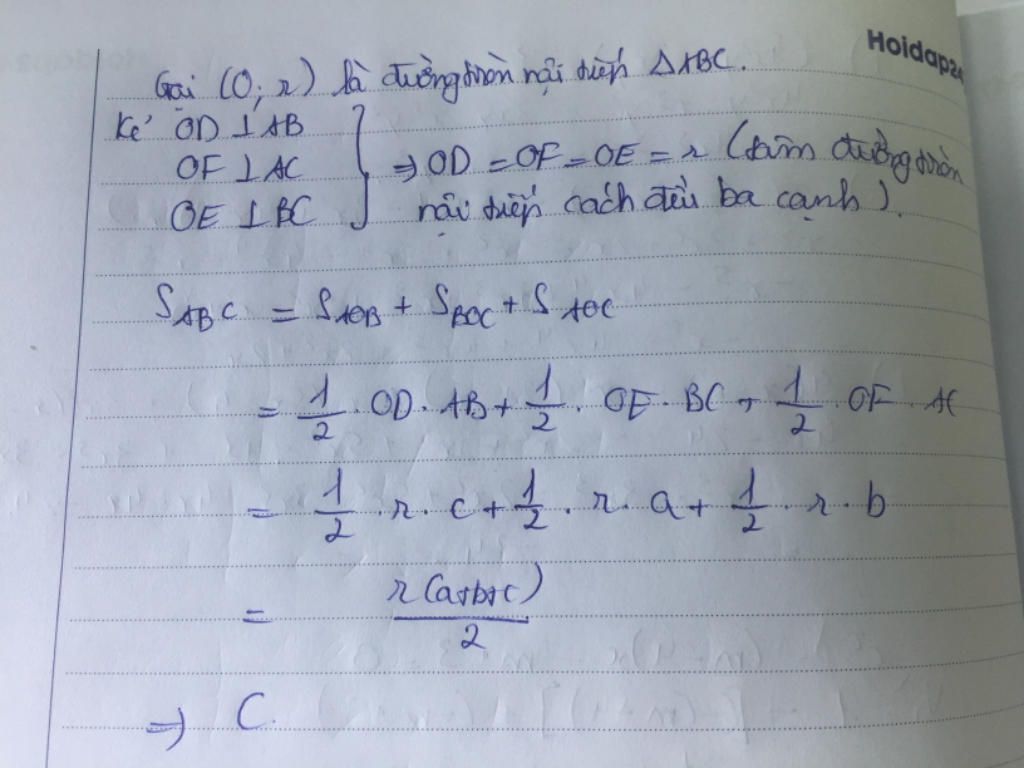 Hoidap24
Gọi (O; r) là đường tròn nội tiếp ΔABC.
Kẻ OD ⊥ AB
OF ⊥ AC
OE ⊥ BC
⇒ OD = OF = OE = r (tâm đường tròn
nội tiếp cách đều ba cạnh).
S_ABC = S_AOB + S_BOC + S_AOC
= 1/2 · OD · AB + 1/2 · OE · BC + 1/2 · OF · AC
= 1/2 · r · c + 1/2 · r · a + 1/2 · r · b
= r(a+b+c)/2
⇒ C.